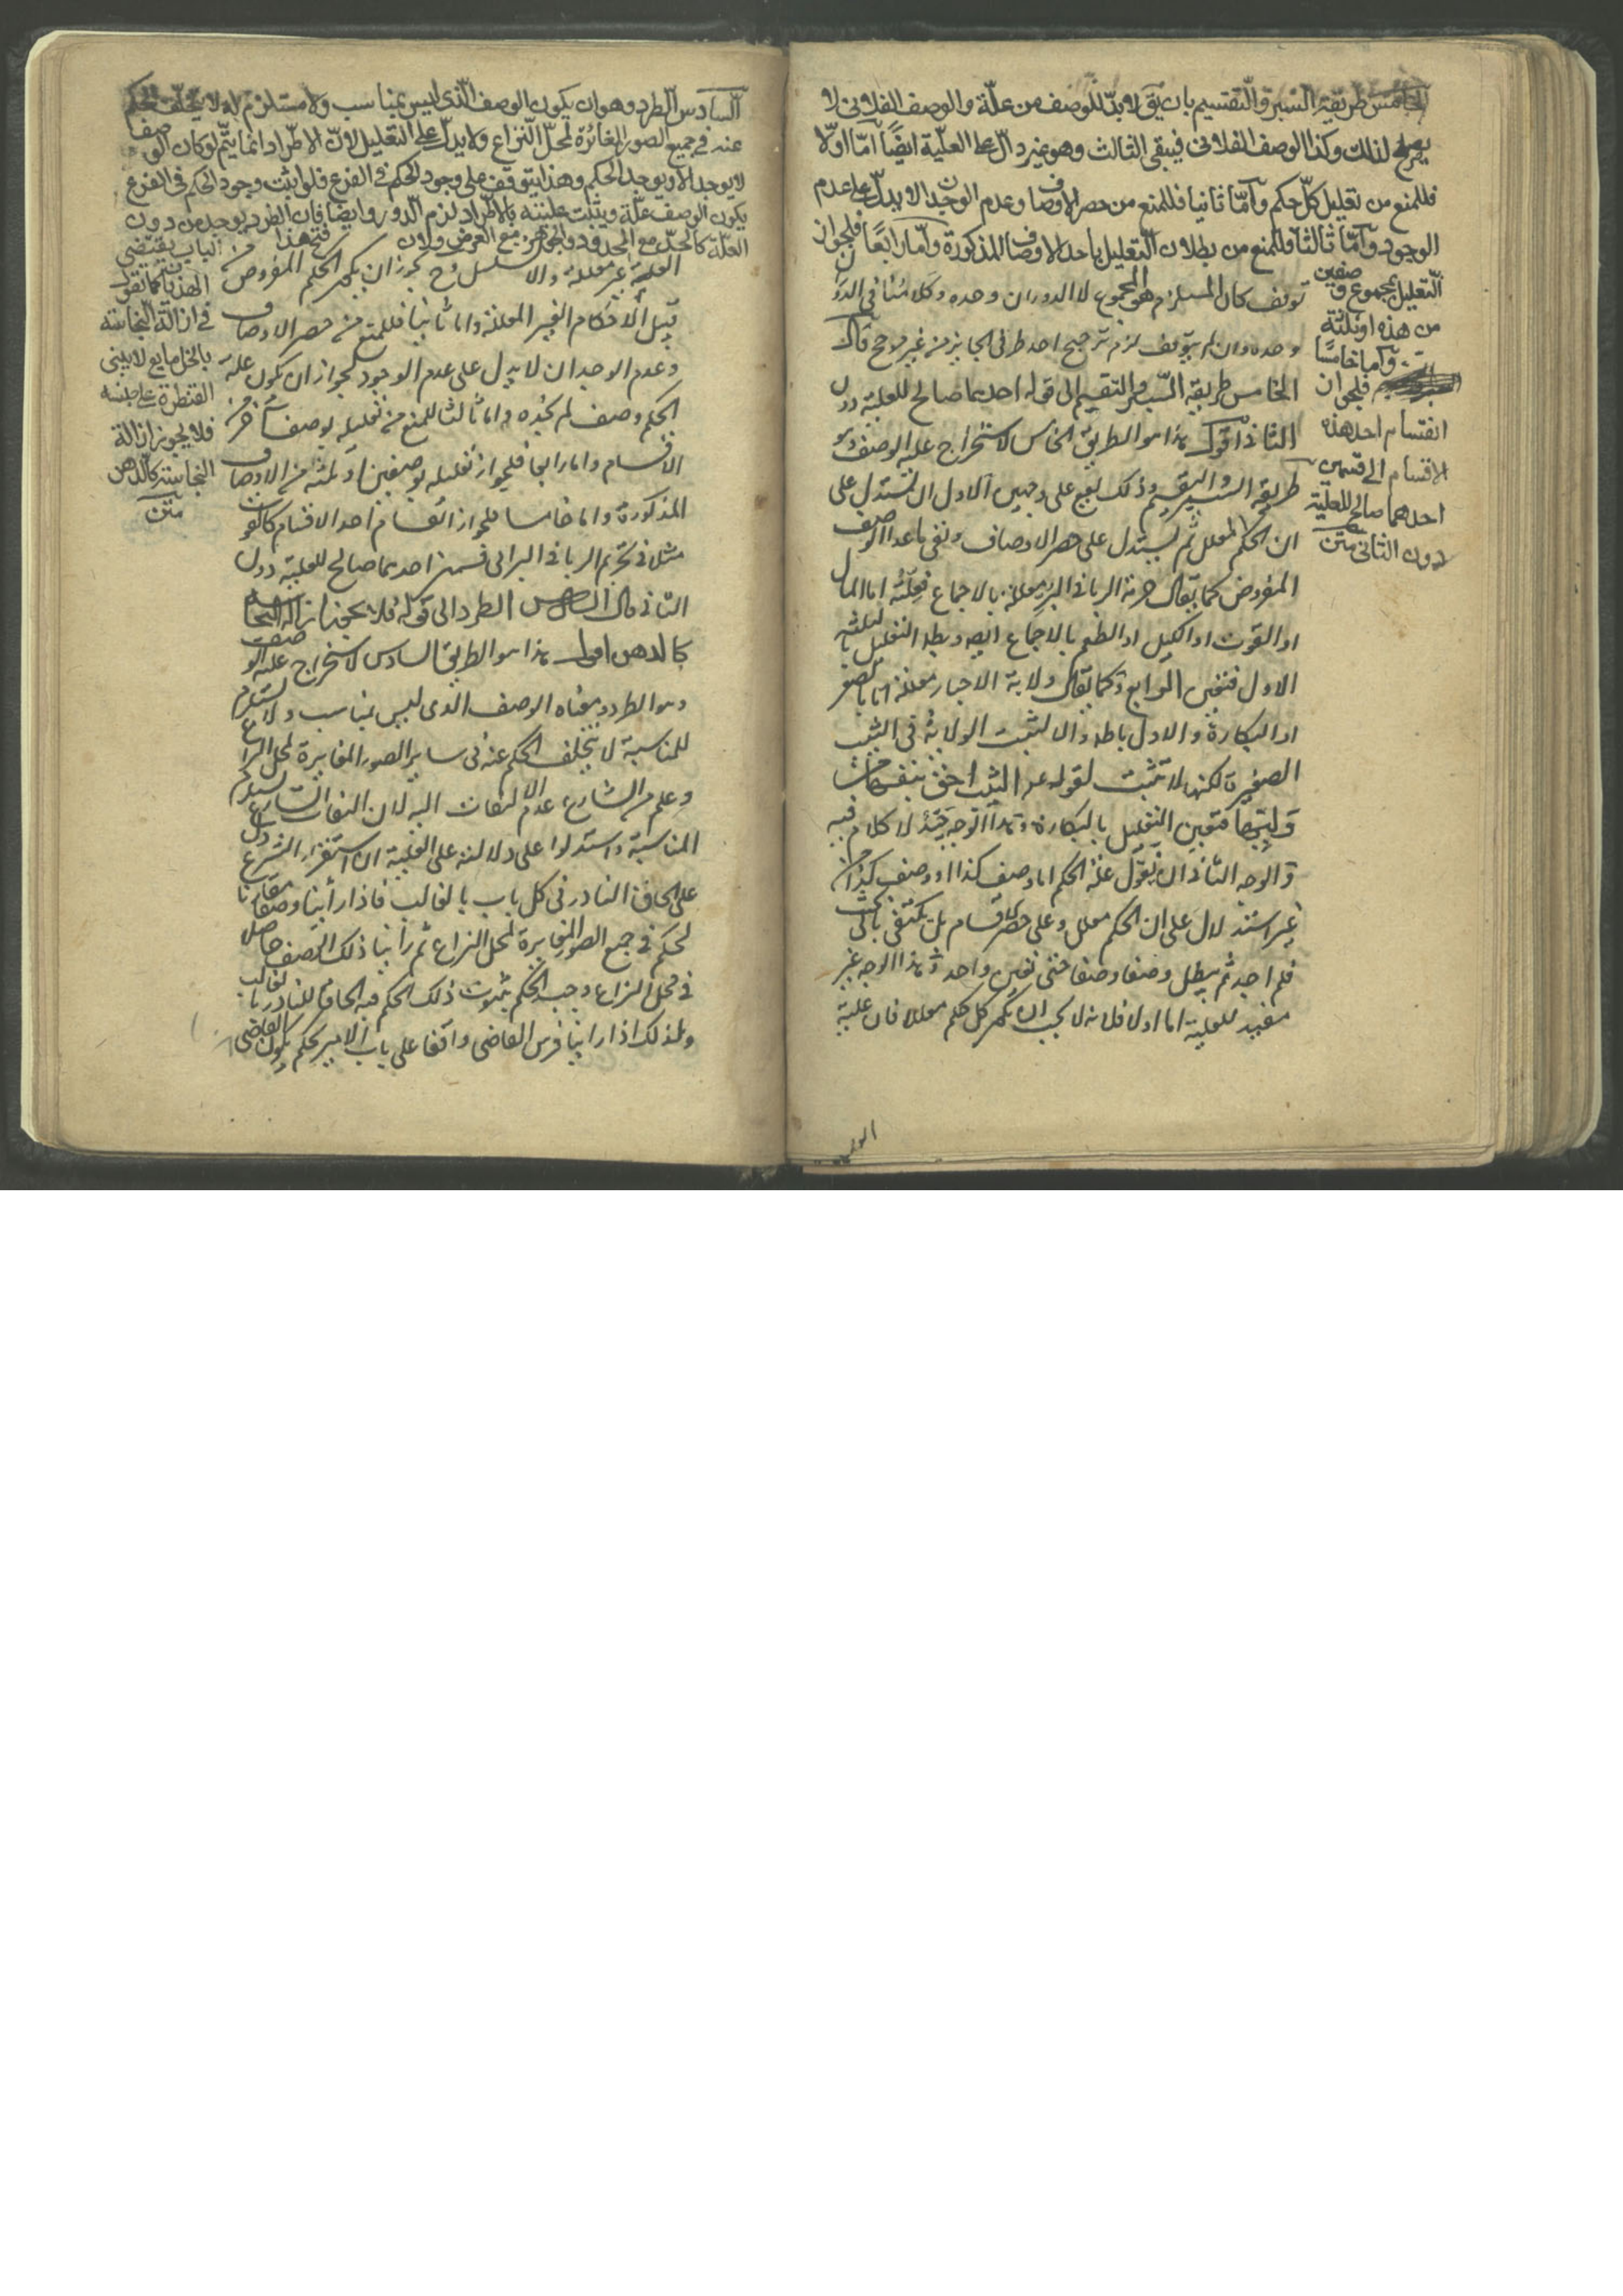 الخامس طريقة السبر والتقسيم بان يق لا بدّ للوصف من علّة والوصف الفلانى لا
يصلح لذلك وكذا الوصف الفلانى فيبقى الثالث وهو غير دالّ على العليّة ايضًا امّا اولا
فللمنع من تعليل كلّ حكم وامّا ثانيا فللمنع من حصر الاوصاف وعدم الوجدان لا يدلّ على عدم
الوجود وامّا ثالثا فللمنع من بطلان التعليل باحد الاوصاف المذكورة وامّا رابعًا فلجواز
التّعليل بمجموع وصفين
من هذه او ثلثة
وامّا خامسًا
فلجوان
انقسام احد هذه
الاقسام الى قسمين
احدهما صالح للعلية
دون الثانى متن
توقف كان المستلزم هو المجموع لا الدوران وحده وكلامنا فى الدو
وحده وان لم يتوقف لزم ترجيح احد طرفى الجايز من غير مرجح قال
الخامس طريقة السبر والتقسيم الى قوله احدهما صالح للعلية دون
الثانى اقول هذا هو الطريق الخامس لاستخراج علة الوصف وهو
طريقة السبر والتقسيم وذلك يقع على وجهين الاول ان يستدل على
ان الحكم معلل ثم يستدل على حصر الاوصاف ونفى ما عدا الوصف
المفروض كما يقال حرمة الربا فى البر معللة بالاجماع فعلّته اما المال
او القوت او الكيل او الطعم بالاجماع ايضا وبطل التعليل بالثلثة
الاول فتعين الرابع وكما يقال ولاية الاجبار معللة اما بالصغر
او البكارة والاول باطل والا لثبت الولاية فى الثيب
الصغيرة لكنها لا تثبت لقوله عم الثيب احق بنفسها من
وليّها فتعين التعليل بالبكارة وهذا الوجه جيّد لا كلام فيه
والوجه الثانى ان يقول علة الحكم اما وصف كذا او وصف كذا من
غير استدلال على ان الحكم معلل وعلى حصر الاقسام بل يكتفى بالبحث
فلم اجد ثم يبطل وصفا وصفا حتى تعين واحد وهذا الوجه غير
مفيد للعلية اما اولا فلانه لا يجب ان يكون كل حكم معللا فان علية
العلية
السّادس الطرد وهو ان يكون الوصف الّذى ليس بمناسب ولا مستلزم له لا يتخلّف الحكم
عنه فى جميع الصور المغائرة لمحلّ النّزاع ولا يدلّ على التعليل لانّ الاطّراد انّما يتّم لو كان الوصف
لا يوجد الا ويوجد الحكم وهذا يتوقف على وجود الحكم فى الفرع فلو اثبت وجود الحكم فى الفرع
يكون الوصف علّة ويثبت عليته بالاطّراد لزم الدور وايضا فان الطرد يوجد من دون
العلّة كالحدّ مع المحدود والجوهر مع العرض ولان
فتح هذا الباب يقتضى
الهذيان كما تقول
فى ازالة النجاسة
بالخل مايع لا يبنى
القنطرة على جنسه
فلا يجوز ازالة
النجاسة كالدهن
متن
العلية غير معللة والا لتسلسل وح يجوز ان يكون الحكم المفروض من
قبيل الاحكام الغير المعللة واما ثانيا فللمنع من حصر الاوصاف
وعدم الوجدان لا يدل على عدم الوجود لجواز ان يكون علة
الحكم وصف لم تجده واما ثالثا للمنع من تعليله بوصف آخر من
الاقسام واما رابعا فلجواز تعليله بوصفين او ثلثة من الاوصاف
المذكورة واما خامسا للجواز انقسام احد الاقسام كالقوت
مثلا فى تحريم الربا فى البر الى قسمين احدهما صالح للعلية دون
الثانى قال السادس الطرد الى قوله فلا يجوز ازالة النجاسة
كالدهن اقول هذا هو الطريق السادس لاستخراج علة الوصف
وهو الطرد ومعناه الوصف الذى ليس بمناسب ولا مستلزم
للمناسبة لا يتخلف الحكم عنه فى ساير الصور المغايرة لمحل النزاع
وعلم من الشارع عدم الالتفات اليه لان التفات الشارع يستلزم
المناسبة واستدلوا على دلالته على العلية ان استقراء الشرع دل
على الحاق النادر فى كل باب بالغالب فاذا رأينا وصفا مقارنا
لحكم فى جميع الصور المغايرة لمحل النزاع ثم رأينا ذلك الوصف حاصلا
فى محل النزاع وجب الحكم بثبوت ذلك الحكم فيه الحاقا للنادر بالغالب
ولذلك اذا راينا فرس القاضى واقفا على باب الامير يحكم بكون القاضى